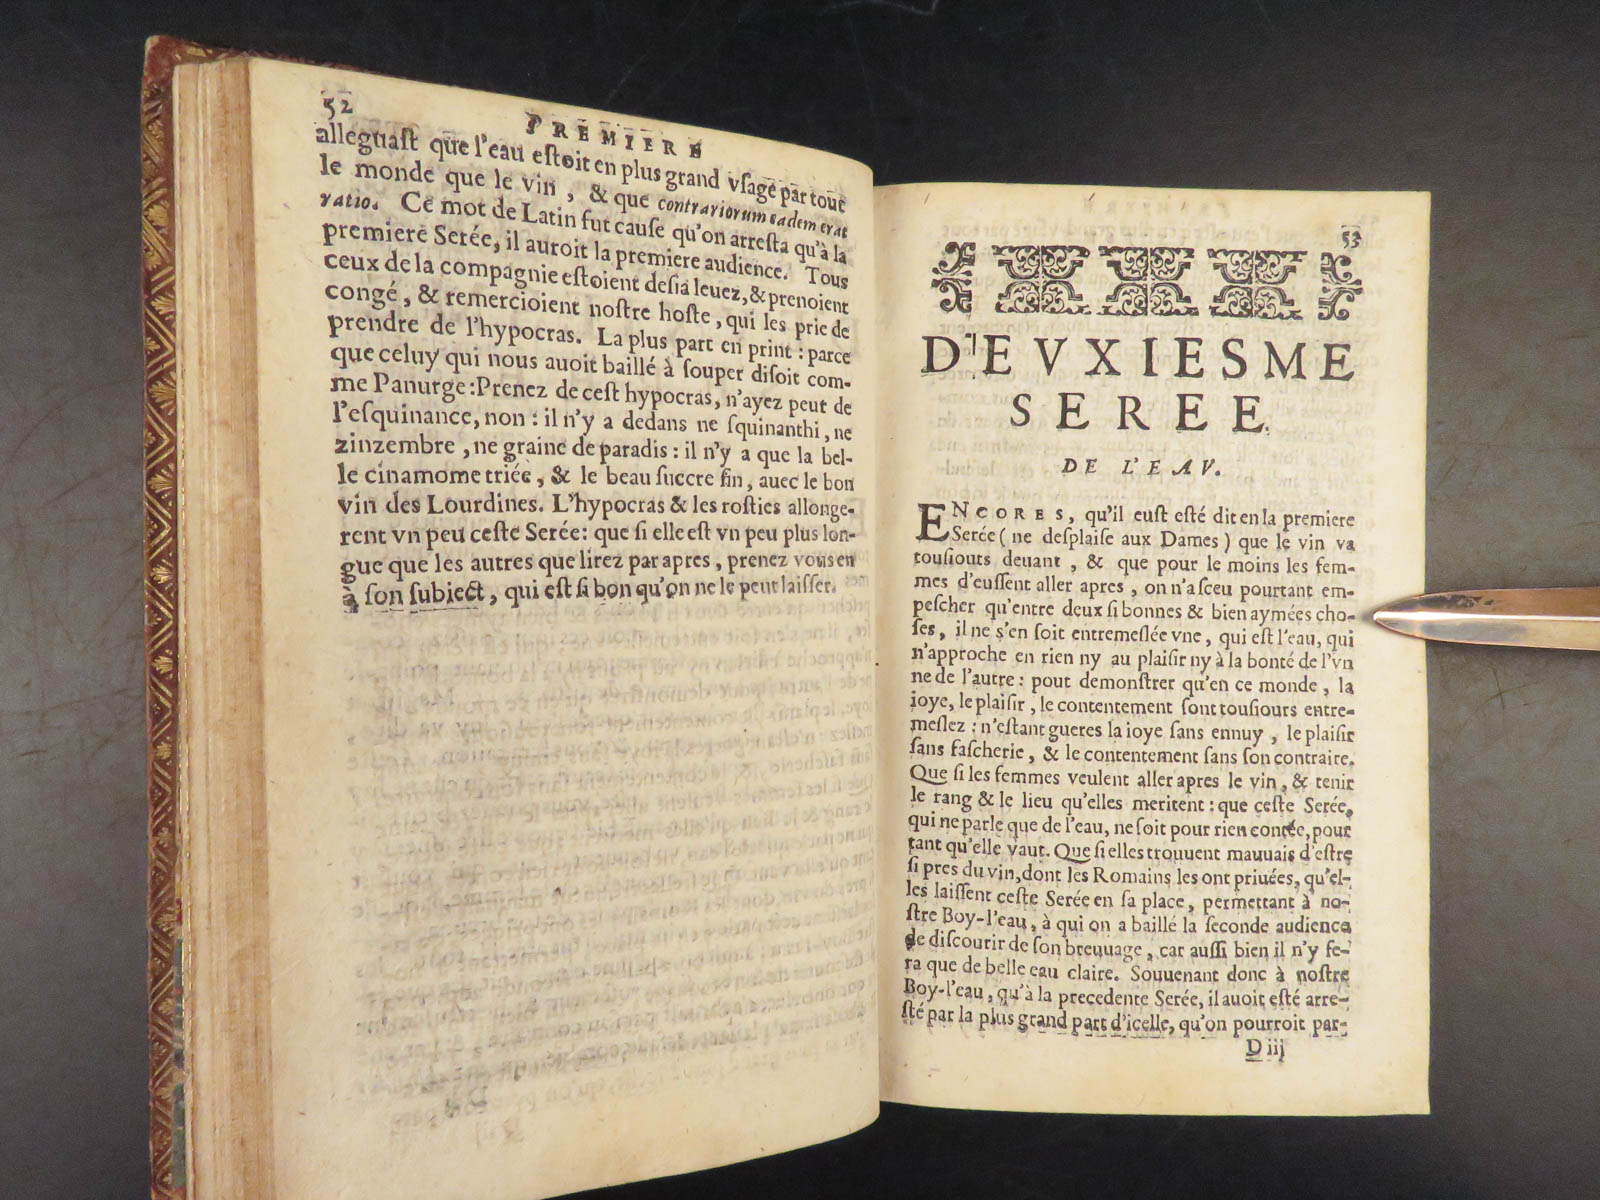 52
PREMIERE
alleguaſt que l'eau eſtoit en plus grand vſage par tout
le monde que le vin, & que contrariorum eadem erat
ratio. Ce mot de Latin fut cauſe qu'on arreſta qu'à la
premiere Serée, il auroit la premiere audience. Tous
ceux de la compagnie eſtoient deſia leuez, & prenoient
congé, & remercioient noſtre hoſte, qui les prie de
prendre de l'hypocras. La plus part en print : parce
que celuy qui nous auoit baillé à ſouper diſoit com-
me Panurge : Prenez de ceſt hypocras, n'ayez peut de
l'eſquinance, non : il n'y a dedans ne ſquinanthi, ne
zinzembre, ne graine de paradis : il n'y a que la bel-
le cinamome triée, & le beau ſuccre fin, auec le bon
vin des Lourdines. L'hypocras & les roſties allonge-
rent vn peu ceſte Serée : que ſi elle eſt vn peu plus lon-
gue que les autres que lirez par apres, prenez vous en
à ſon ſubiect, qui eſt ſi bon qu'on ne le peut laiſſer.
53
DEVXIESME
SEREE.
DE L'EAV.
ENCORES, qu'il euſt eſté dit en la premiere
Serée ( ne deſplaiſe aux Dames ) que le vin va
touſiouts deuant, & que pour le moins les fem-
mes d'euſſent aller apres, on n'a ſceu pourtant em-
peſcher qu'entre deux ſi bonnes & bien aymées cho-
ſes, il ne s'en ſoit entremeſlée vne, qui eſt l'eau, qui
n'approche en rien ny au plaiſir ny à la bonté de l'vn
ne de l'autre : pout demonſtrer qu'en ce monde, la
ioye, le plaiſir, le contentement ſont touſiours entre-
meſlez : n'eſtant gueres la ioye ſans ennuy, le plaiſir
ſans faſcherie, & le contentement ſans ſon contraire.
Que ſi les femmes veulent aller apres le vin, & tenir
le rang & le lieu qu'elles meritent : que ceſte Serée,
qui ne parle que de l'eau, ne ſoit pour rien contée, pour
tant qu'elle vaut. Que ſi elles trouuent mauuais d'eſtre
ſi pres du vin, dont les Romains les ont priuées, qu'el-
les laiſſent ceſte Serée en ſa place, permettant à no-
ſtre Boy-l'eau, à qui on a baillé la ſeconde audience
de diſcourir de ſon breuuage, car auſſi bien il n'y ſe-
ra que de belle eau claire. Souuenant donc à noſtre
Boy-l'eau, qu'à la precedente Serée, il auoit eſté arre-
ſté par la plus grand part d'icelle, qu'on pourroit par-
D iij